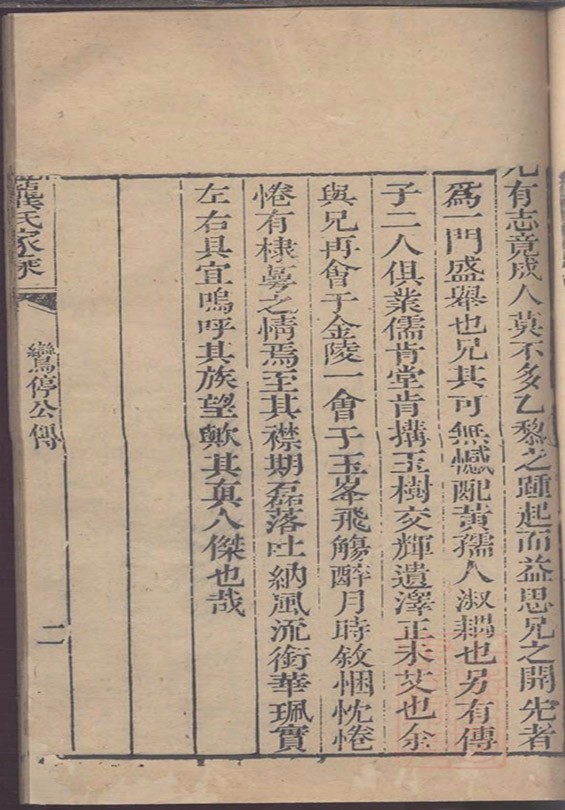 兄有志竟成人莫不多乙黎之踵起而益思兄之開先者
為一門盛舉也兄其可無憾配黃孺人淑耦也另有傳
子二人俱業儒肯堂肯搆玉樹交輝遺澤正未艾也余
與兄再會于金陵一會于玉峯飛觴醉月時敘悃忱惓
惓有棣萼之情焉至其襟期磊落吐納風流銜華珮實
左右具宜嗚呼其族望歟其真人傑也哉
龔氏家乘
鸞停公傳
二